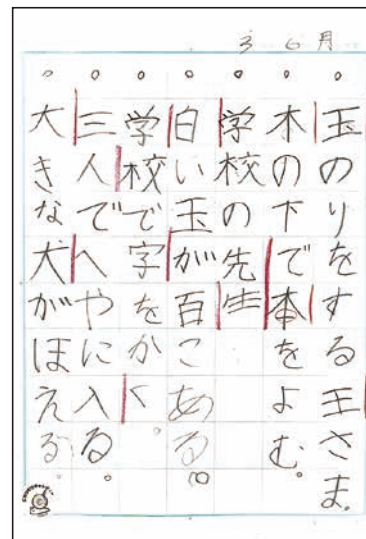 3 6月
。玉のりをする王さま。
。木の下で本をよむ。
。学校の先生
。白い玉が百こある。
。学校で字をかく。
。三人でへやに入る。
。大きな犬がほえる。